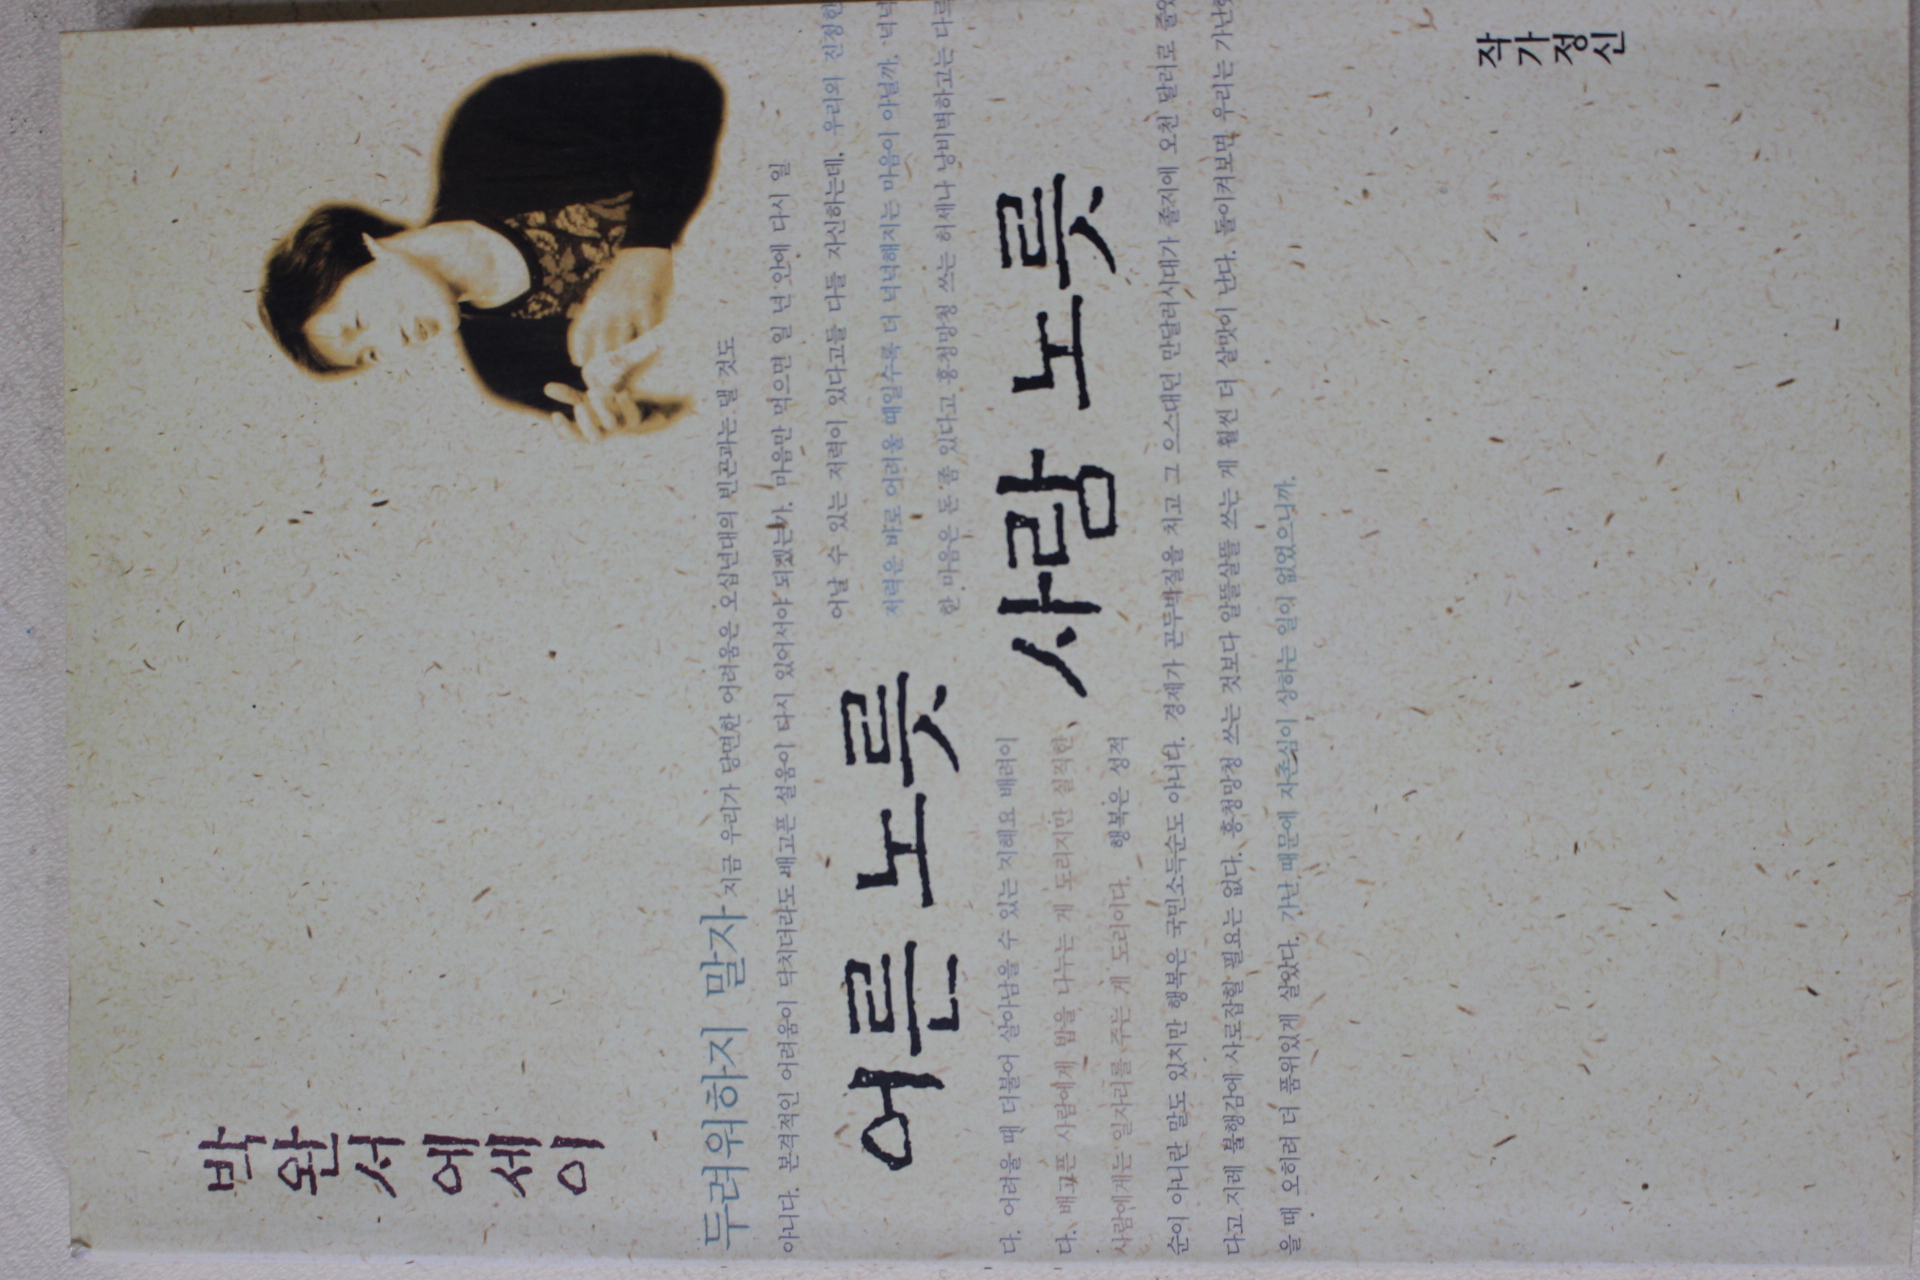 박완서 에세이
두려워하지 말자 지금 우리가 당면한 어려움은 오십년대의 빈곤과는 댈 것도
아니다. 본격적인 어려움이 닥치더라도 배고픈 설움이 다시 있어서야 되겠는가. 마음만 먹으면 일 년 안에 다시 일
어날 수 있는 저력이 있다고들 다들 자신하는데, 우리의 진정한
저력은 바로 어려울 때일수록 더 넉넉해지는 마음이 아닐까. 넉넉
한 마음은 돈 좀 있다고 흥청망청 쓰는 허세나 낭비벽하고는 다르
어른 노릇
사람 노릇
다. 어려울 때 더불어 살아남을 수 있는 지혜요 배려이
다. 배고픈 사람에게 밥을 나누는 게 도리지만 실직한
사람에게는 일자리를 주는 게 도리이다. 행복은 성적
순이 아니란 말도 있지만 행복은 국민소득순도 아니다. 경제가 곤두박질을 치고 그 으스대던 만달러시대가 졸지에 오천 달러로 줄었
다고 지레 불행감에 사로잡힐 필요는 없다. 흥청망청 쓰는 것보다 알뜰살뜰 쓰는 게 훨씬 더 살맛이 난다. 돌이켜보면 우리는 가난했
을 때 오히려 더 품위있게 살았다. 가난 때문에 자존심이 상하는 일이 없었으니까.
작가정신